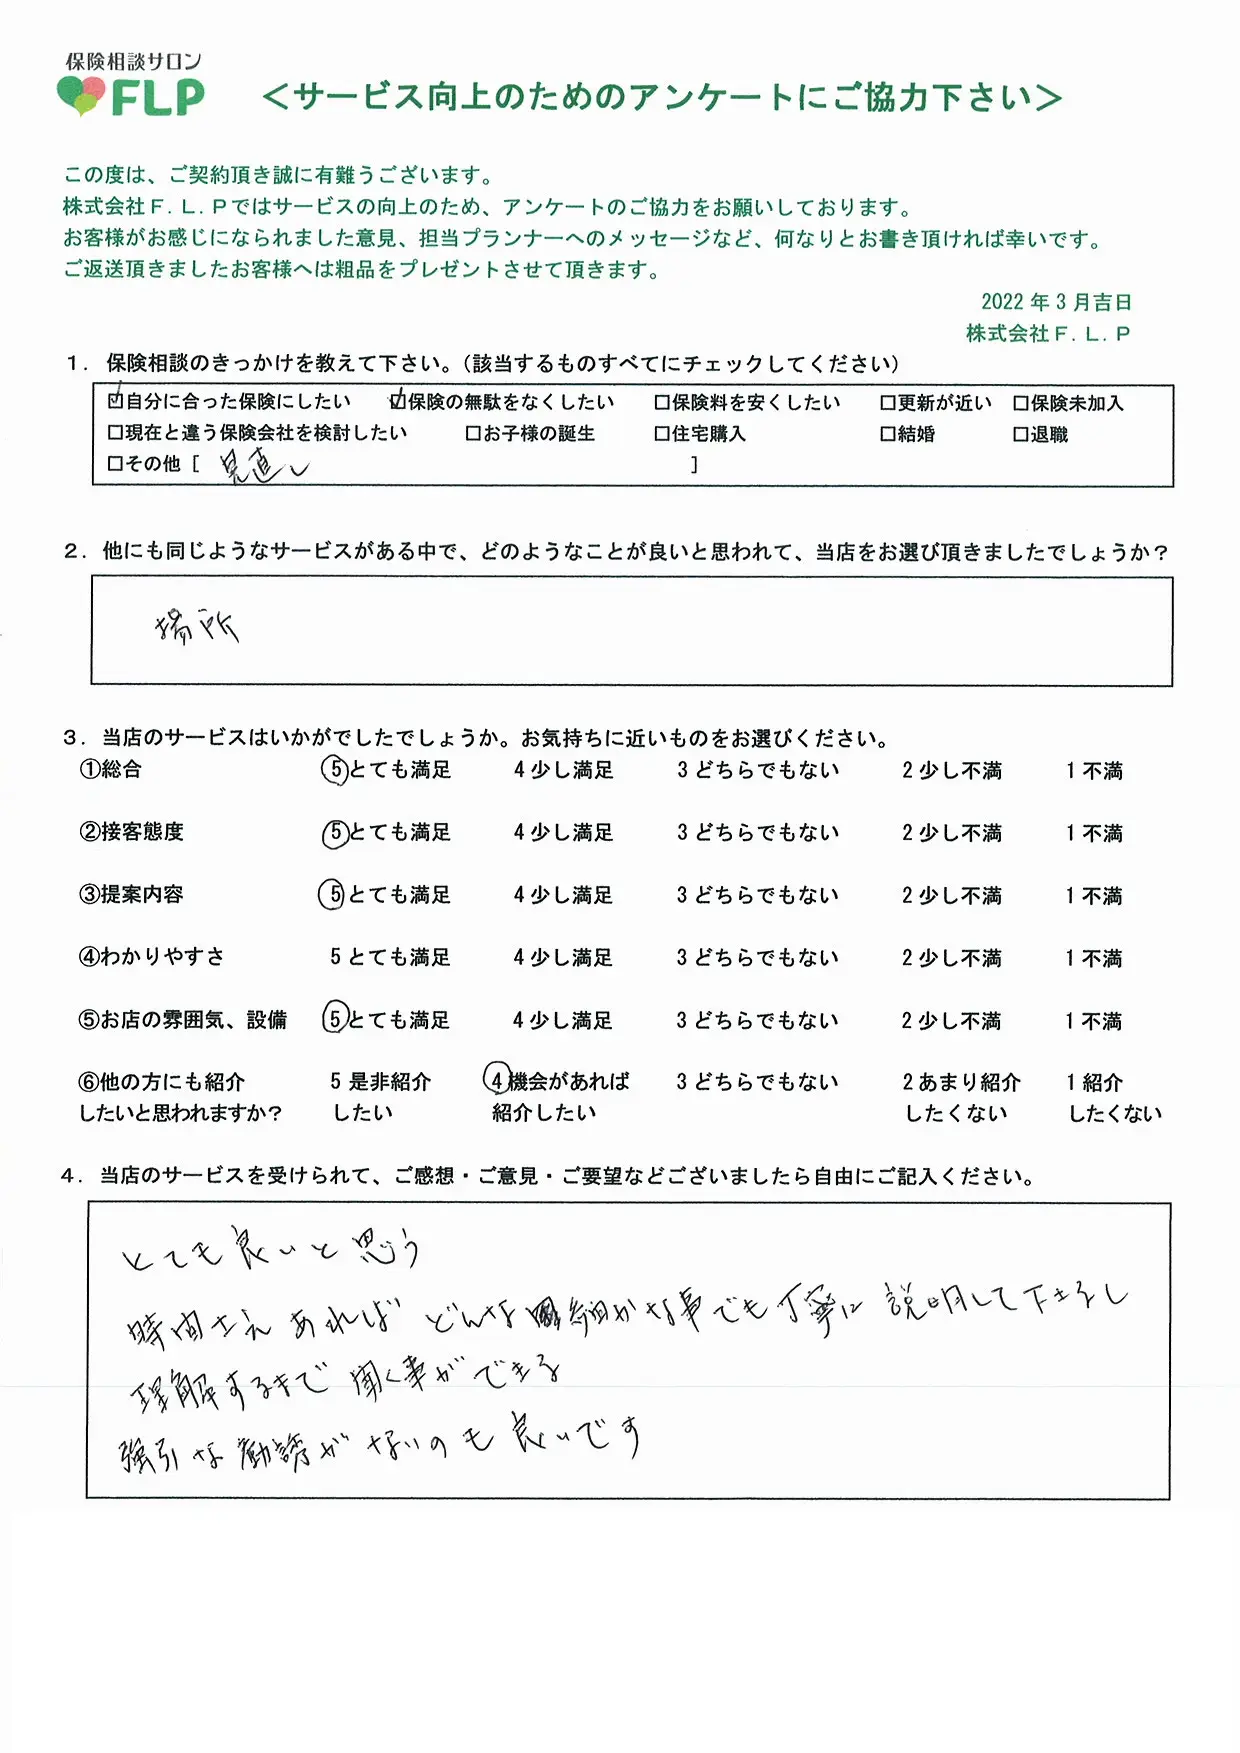 保険相談サロン
FLP
＜サービス向上のためのアンケートにご協力下さい＞
この度は、ご契約頂き誠に有難うございます。
株式会社Ｆ.Ｌ.Ｐではサービスの向上のため、アンケートのご協力をお願いしております。
お客様がお感じになられました意見、担当プランナーへのメッセージなど、何なりとお書き頂ければ幸いです。
ご返送頂きましたお客様へは粗品をプレゼントさせて頂きます。
2022 年 3 月吉日
株式会社Ｆ.Ｌ.Ｐ
１．保険相談のきっかけを教えて下さい。（該当するものすべてにチェックしてください）
☑自分に合った保険にしたい ☑保険の無駄をなくしたい □保険料を安くしたい □更新が近い □保険未加入
□現在と違う保険会社を検討したい □お子様の誕生 □住宅購入 □結婚 □退職
□その他［ 見直し ］
２．他にも同じようなサービスがある中で、どのようなことが良いと思われて、当店をお選び頂きましたでしょうか？
場所
３．当店のサービスはいかがでしたでしょうか。お気持ちに近いものをお選びください。
①総合 5 とても満足 4 少し満足 3 どちらでもない 2 少し不満 1 不満
②接客態度 5 とても満足 4 少し満足 3 どちらでもない 2 少し不満 1 不満
③提案内容 5 とても満足 4 少し満足 3 どちらでもない 2 少し不満 1 不満
④わかりやすさ 5 とても満足 4 少し満足 3 どちらでもない 2 少し不満 1 不満
⑤お店の雰囲気、設備 5 とても満足 4 少し満足 3 どちらでもない 2 少し不満 1 不満
⑥他の方にも紹介 5 是非紹介 4 機会があれば 3 どちらでもない 2 あまり紹介 1 紹介
したいと思われますか？ したい 紹介したい したくない したくない
４．当店のサービスを受けられて、ご感想・ご意見・ご要望などございましたら自由にご記入ください。
とても良いと思う
時間さえあれば どんな細かな事でも丁寧に説明して下さるし
理解するまで聞く事ができる
強引な勧誘がないのも良いです